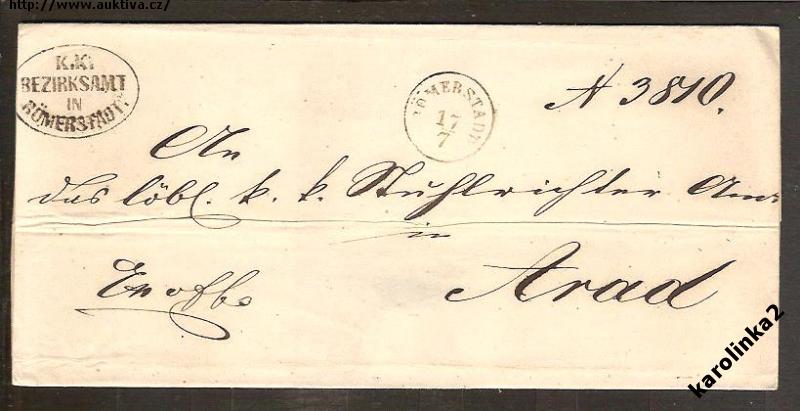 http://www.auktiva.cz/
K.K.
BEZIRKSAMT
IN
RÖMERSTADT.
RÖMERSTADT
17
7
N 3810.
An
das löbl. k. k. Stuhlrichter Amt
in
Arad
karolinka2